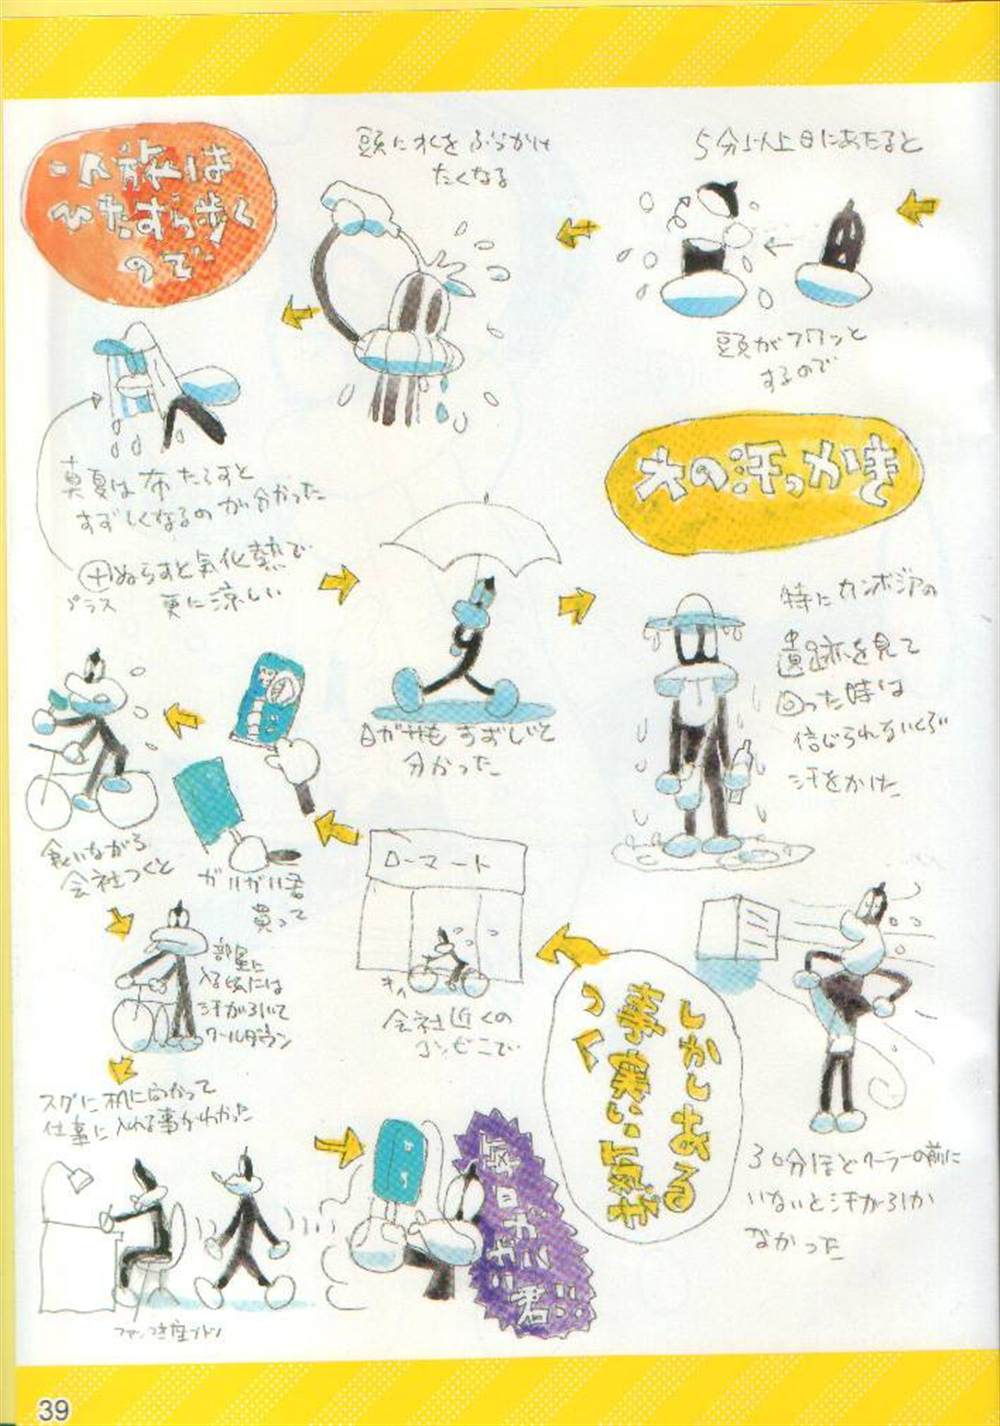 大の汗っかき
特にカンボジアの
遺跡を見て
回った時は
信じられないくらい
汗をかいた
30分ほどクーラーの前に
いないと汗が引か
なかった
5分以上日にあたると
頭がフワッと
するので
頭に水をぶっかけ
たくなる
一人旅は
ひたすら歩く
ので
真夏は布たらすと
すずしくなるのが分かった
＋ぬらすと気化熱で
プラス
更に涼しい
日ガサもすずしいと
分かった
しかしある
事実に気が
つく
ローマート
キィ
会社近くの
コンビニで
ガリガリ君
買って
食いながら
会社つくと
部屋に
入る頃には
汗が引いて
クールダウン
スグに机に向かって
仕事に入れる事がわかった
ファンつき座ブトン
毎日ガリガリ君
39